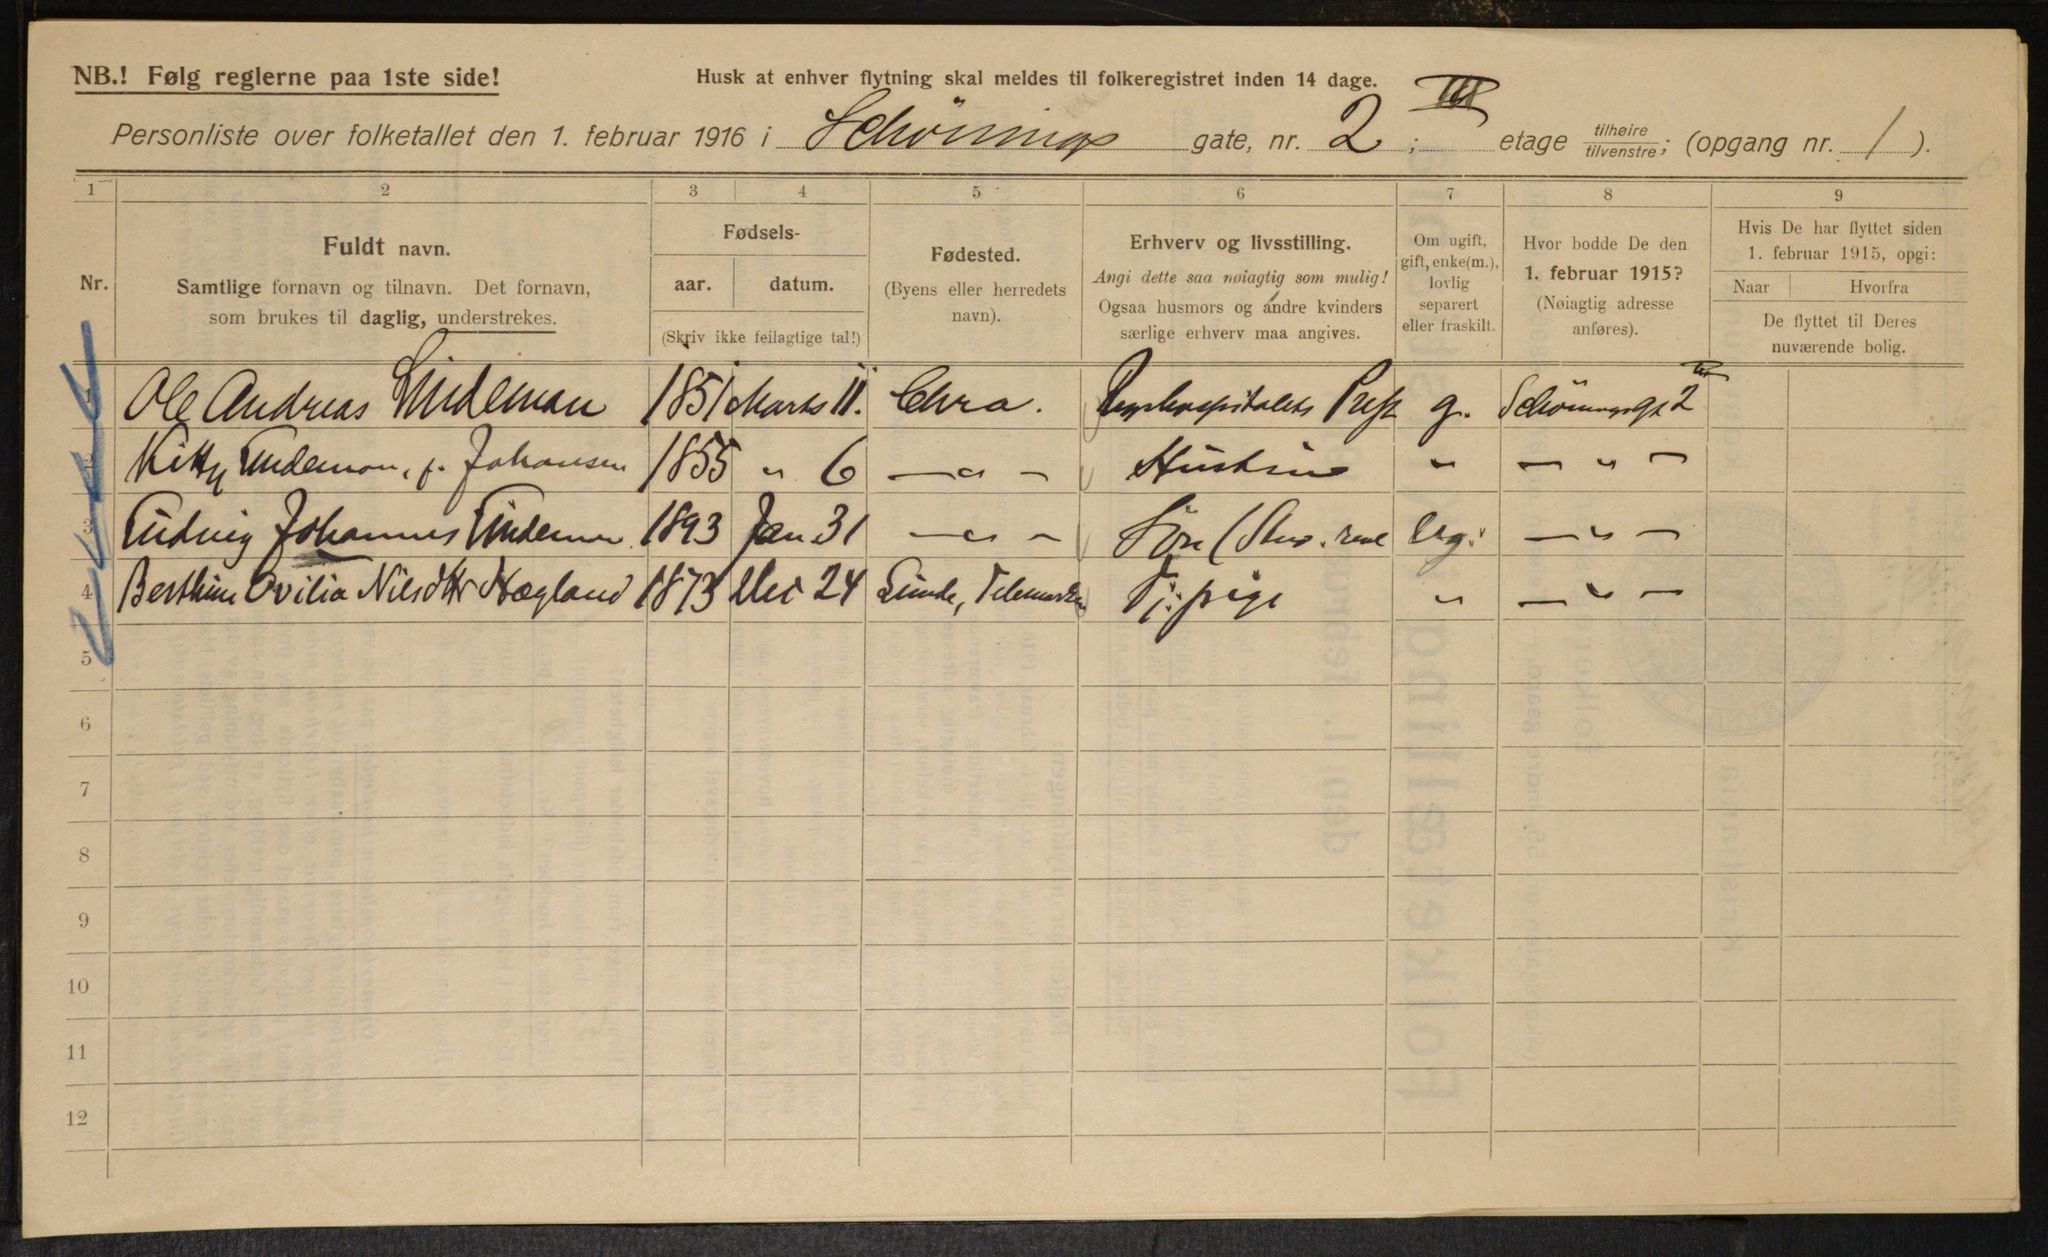 NB.! Følg reglerne paa 1ste side!
Husk at enhver flytning skal meldes til folkeregistret inden 14 dage.
Personliste over folketallet den 1. februar 1916 i Schønings gate, nr. 2 ; III etage tilhøire tilvenstre; (opgang nr. 1 ).
1 2 3 4 5 6 7 8 9
Nr.
Fuldt navn.
Samtlige fornavn og tilnavn. Det fornavn,
som brukes til daglig, understrekes.
Fødsels-
aar. datum.
(Skriv ikke feilagtige tal!)
Fødested.
(Byens eller herredets
navn).
Erhverv og livsstilling.
Angi dette saa nøiagtig som mulig!
Ogsaa husmors og andre kvinders
særlige erhverv maa angives.
Om ugift,
gift, enke(m.),
lovlig
separert
eller fraskilt.
Hvor bodde De den
1. februar 1915?
(Nøiagtig adresse
anføres).
Hvis De har flyttet siden
1. februar 1915, opgi:
Naar Hvorfra
De flyttet til Deres
nuværende bolig.
1 Ole Andreas Lindeman 1851 Marts 11. Chra. Prest g. Schöningsgt 2 III
2 Kitty Lindeman, f. Johansen 1855 " 6 — " — Hustru " — " —
3 Ludvig Johannes Lindeman 1893 Jan 31 — " — Sön (Stud. real Ug. — " —
4 Berthine Ovilia Nilsdtr Hægland 1873 24 Lunde, Telemarken Tj. pige " — " —
5
6
7
8
9
10
11
12